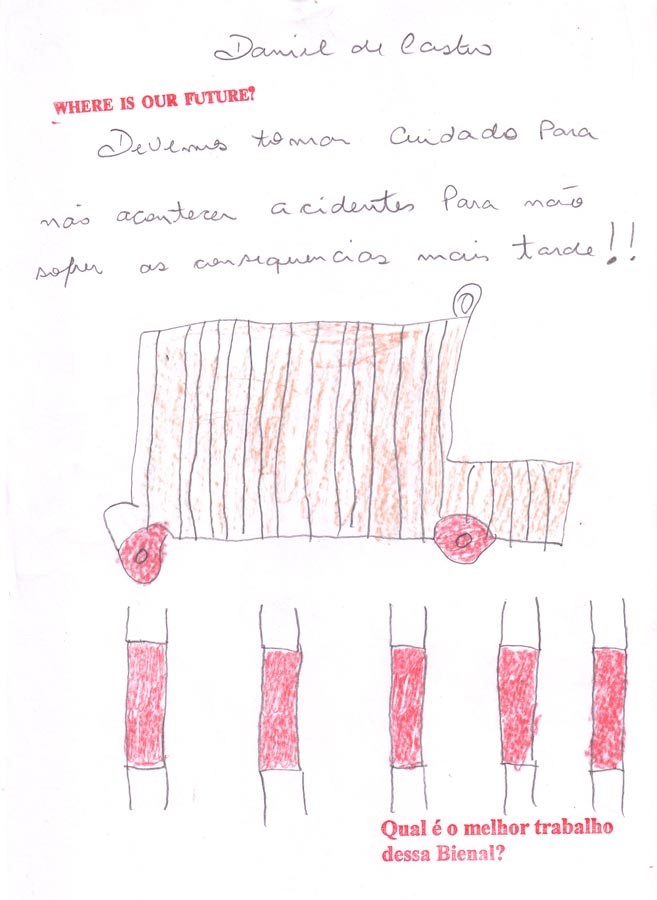 Daniel de Castro
WHERE IS OUR FUTURE?
Devemos tomar cuidado Para
não acontecer acidentes Para não
sofrer as consequencias mais tarde!!
Qual é o melhor trabalho
dessa Bienal?